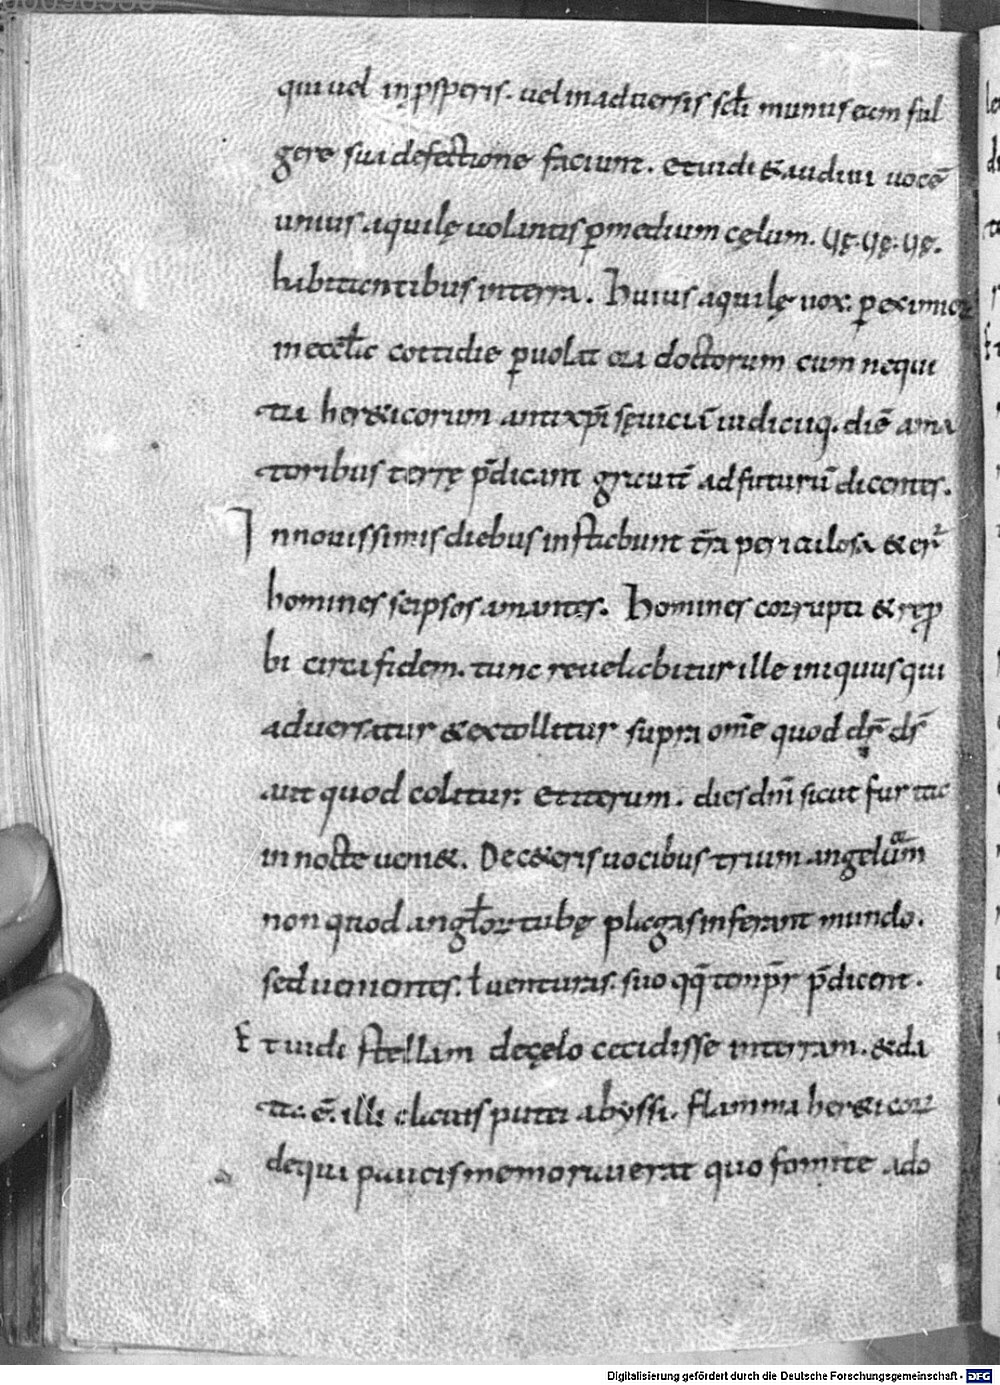 qui uel in ꝓsperis. uel in aduersis scłi munus eam ful
gere sui defectione faciunt. Et uidi & audiui uocē
unius aquilę uolantis ꝑ medium cęlum. Uę. Uę. Uę.
habitantibus in terra. Huius aquilę uox. ꝑ eximioꝝ
in eccłia cottidie ꝑuolat ora doctorum cum nequi
tia her&icorum antixp̄i sęuiciā iudiciiq. diē ama
toribus terrę p̄dicant grauit̄ ad futurū dicentes.
In nouissimis diebus instabunt t̄ra periculosa & er̄
homines seipsos amantes. Homines corrupti & reꝓ
bi circa fidem. tunc reuelabitur ille iniquus qui
aduersatur & extollitur supra om̄e quod d̄r d̄s
aut quod colitur. Et iterum. dies dn̄i sicut fur ita
in nocte ueni&. De c&eris uocibus trium angelorum
non quod angłoꝝ tubę plagas inferant mundo.
sed uenientes. ł uenturas. suo qq̄ temp̄r p̄dicent.
Et uidi stellam de cęlo cecidisse in terram. & da
ta ē. illi clauis putei abyssi. flamma her&icoꝝ
de qui paucis memorauerat quo fomite ado